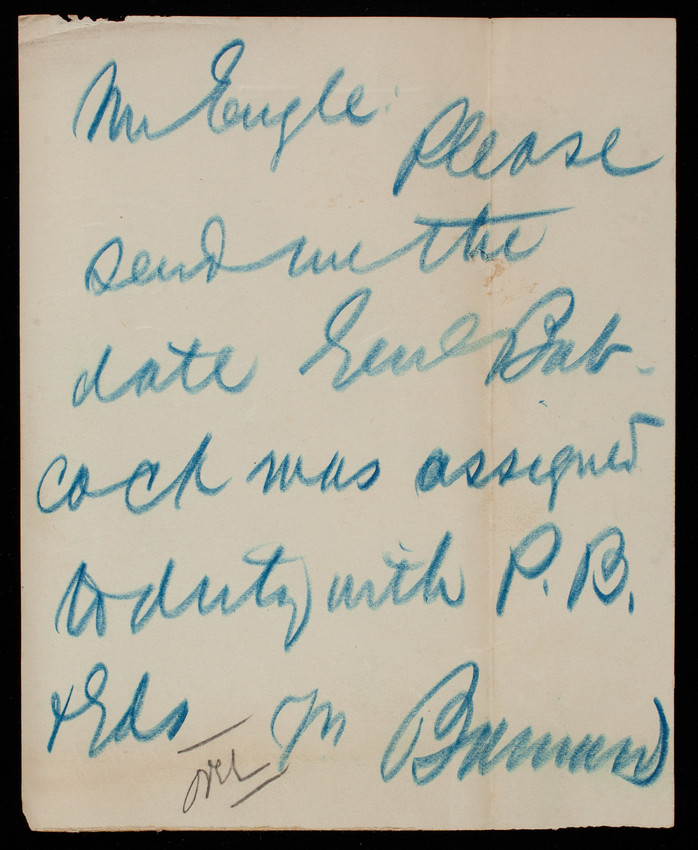 Mr Engle:
Please
send me the
date Genl Bab-
cock was assigned
to duty with P. B.
& Gds
over